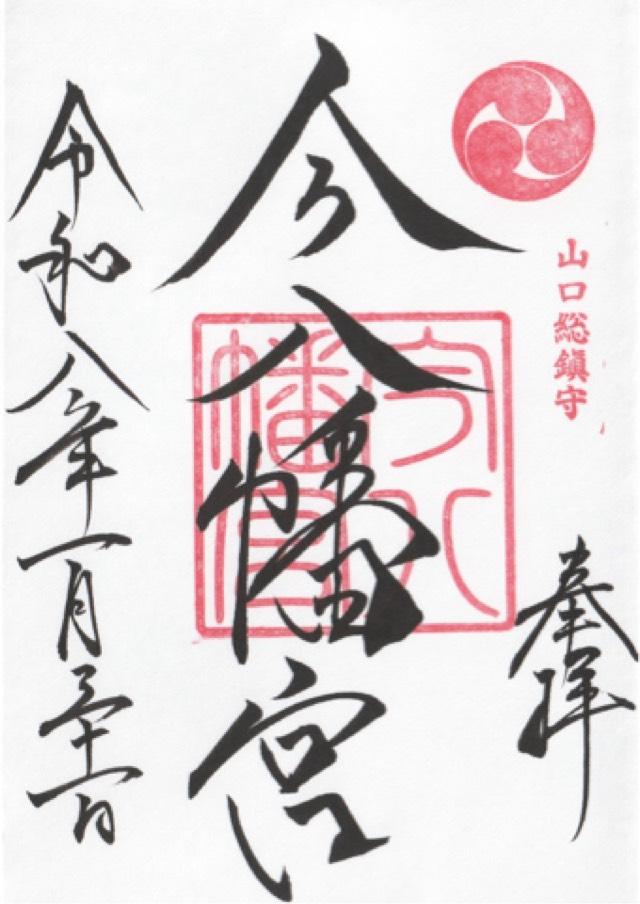 山口総鎮守
奉拝
今八幡宮
今八
幡宮
令和八年一月三十一日